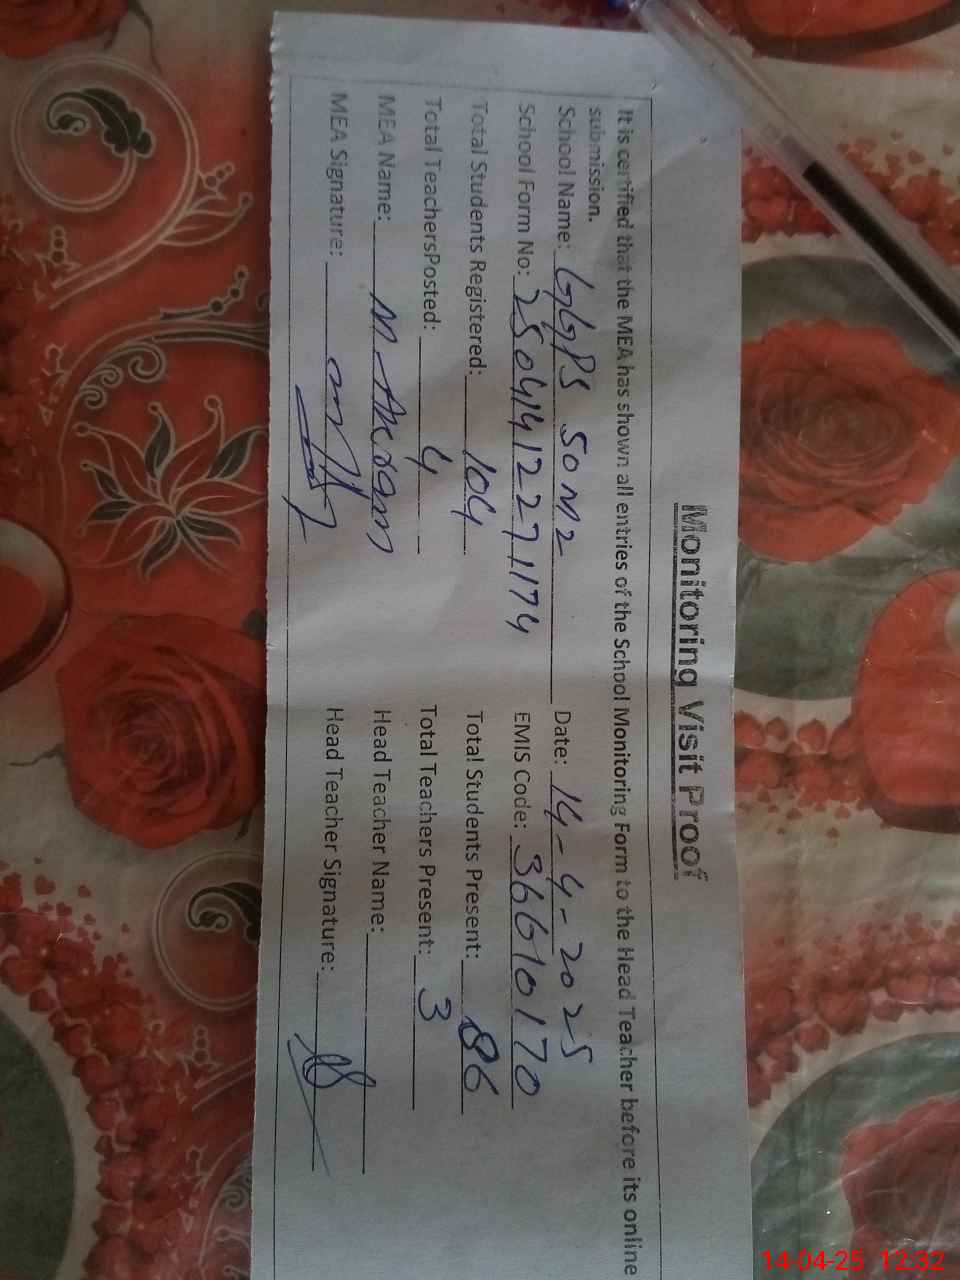 Monitoring Visit Proof
It is certified that the MEA has shown all entries of the School Monitoring Form to the Head Teacher before its online
submission.
School Name: GGPS 50 M2 Date: 14-4-2025
School Form No: 25041412271174 EMIS Code: 36610170
Total Students Registered: 104 Total Students Present: 86
Total TeachersPosted: 4 Total Teachers Present: 3
MEA Name: M. Akram Head Teacher Name:
MEA Signature: Head Teacher Signature:
14-04-25 12:32